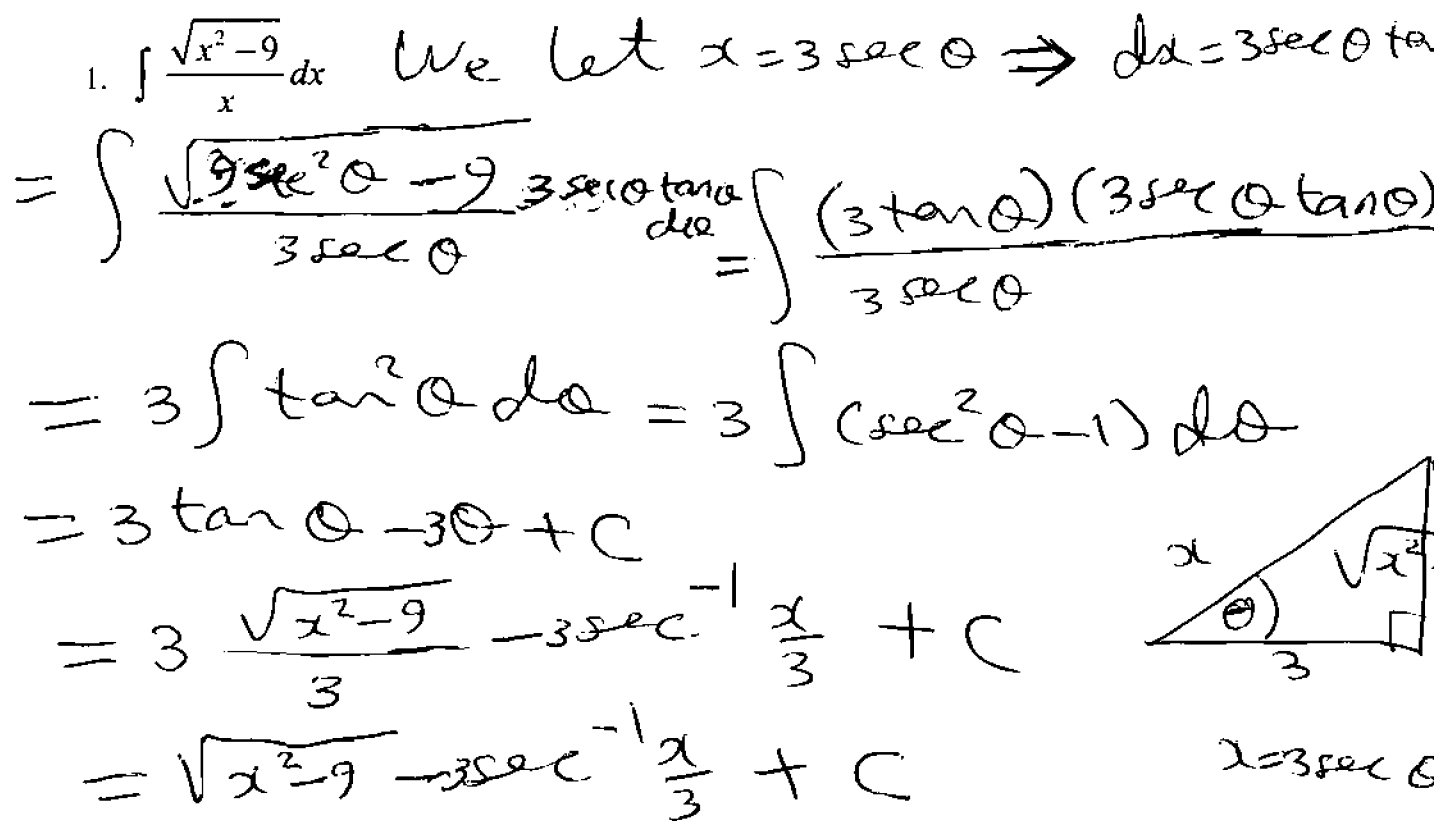 1. ∫ √(x² − 9) / x dx We let x = 3 sec θ ⇒ dx = 3 sec θ ta
= ∫ √(9 sec² θ − 9) / (3 sec θ) 3 sec θ tan θ dθ = ∫ (3 tan θ)(3 sec θ tan θ) / (3 sec θ)
= 3 ∫ tan² θ dθ = 3 ∫ (sec² θ − 1) dθ
= 3 tan θ − 3θ + C
x √x² θ 3
= 3 √(x² − 9) / 3 − 3 sec⁻¹ x/3 + C
= √(x² − 9) − 3 sec⁻¹ x/3 + C x = 3 sec θ